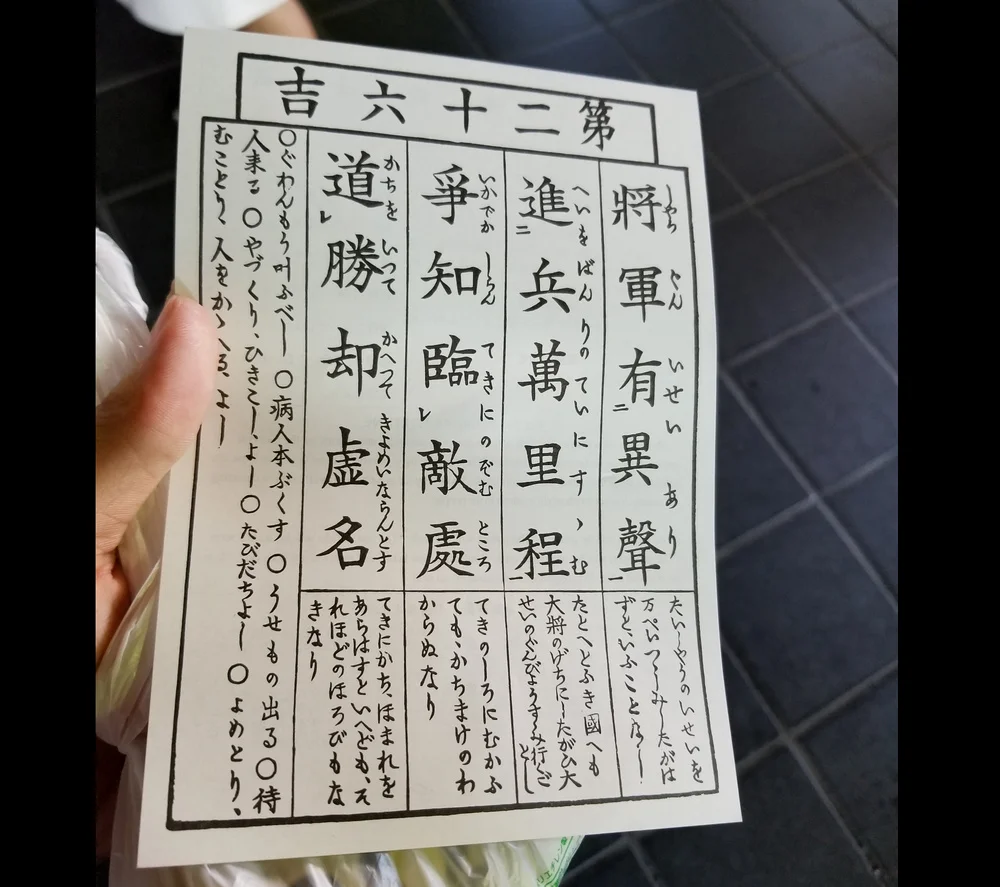 第二十六吉
將軍有異聲
しやうぐんいせいあり
進兵萬里程
へいをばんりのていにすゝむ
爭知臨敵處
いかでかしらんてきにのぞむところ
道勝却虚名
かちをいつてかへつてきよめいならんとす
たいしやうのいせいを
万ぺいつゝしみしたがは
ずといふことなし
たとへとふき國へも
大將のげちにしたがひ大
せいのぐんびょうすゝみ行ごとし
てきのしろにむかふ
ても、かちまけのわ
からぬなり
てきにかち、ほまれを
あらはすといへども、そ
れほどのほろびもな
きなり
○ぐわんもう叶ふべし ○病人本ぶくす ○うせもの出る○待
人来る ○やづくり、ひきこし、よし○たびだちよし ○よめとり、
むことり、人をかゝへる、よし